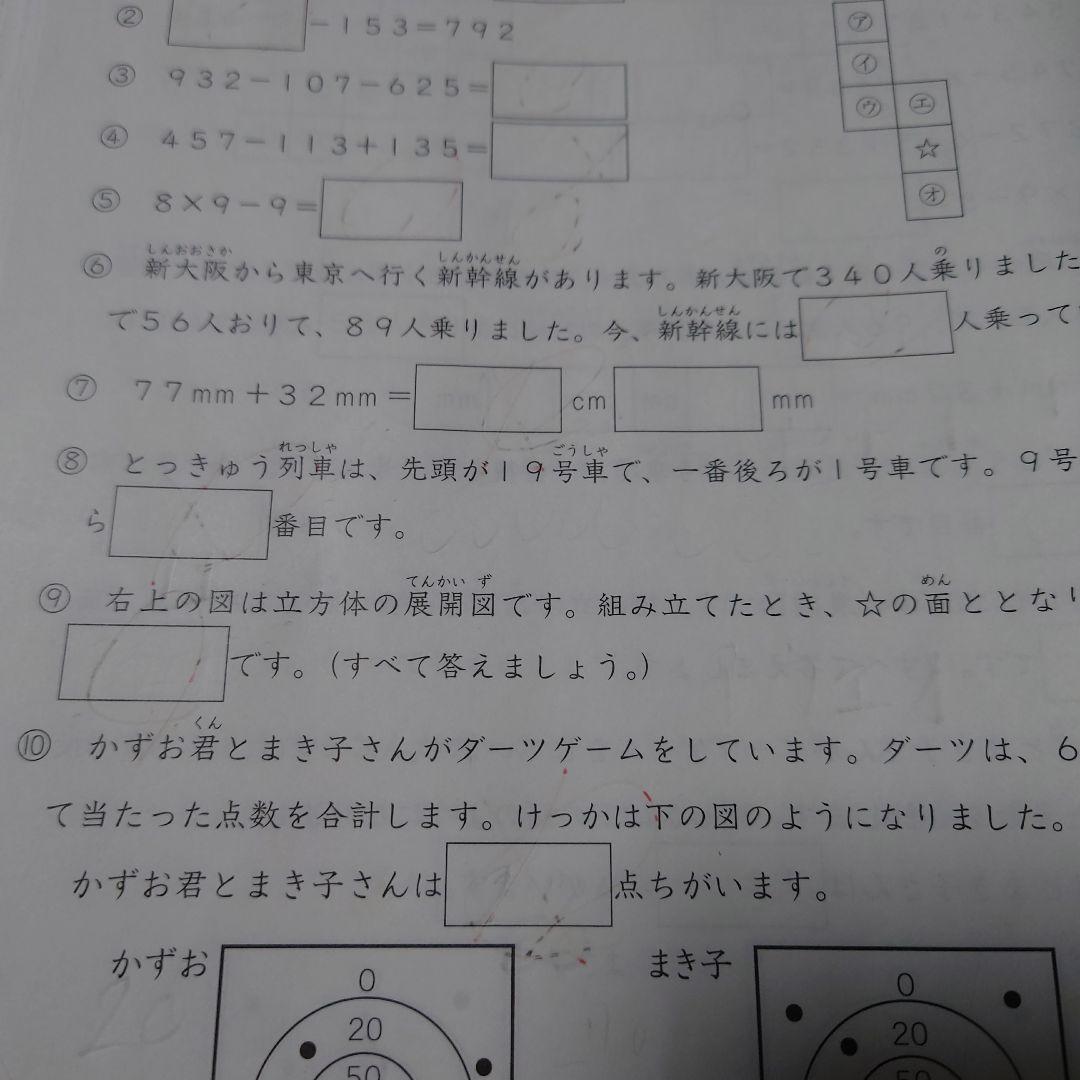 ② －153＝792
㋐
③ 932－107－625＝
㋑
㋒ ㋓
④ 457－113＋135＝
☆
⑤ 8×9－9＝
㋔
しんおおさか しんかんせん の
⑥ 新大阪から東京へ行く新幹線があります。新大阪で340人乗りました
しんかんせん
で56人おりて、89人乗りました。今、新幹線には 人乗って
⑦ 77mm＋32mm＝ cm mm
れっしゃ ごうしゃ
⑧ とっきゅう列車は、先頭が19号車で、一番後ろが1号車です。9号
ら 番目です。
てんかい ず めん
⑨ 右上の図は立方体の展開図です。組み立てたとき、☆の面ととなり
です。(すべて答えましょう。)
くん
⑩ かずお君とまき子さんがダーツゲームをしています。ダーツは、6
て当たった点数を合計します。けっかは下の図のようになりました。
かずお君とまき子さんは 点ちがいます。
かずお まき子
0 0
20 20
50 50